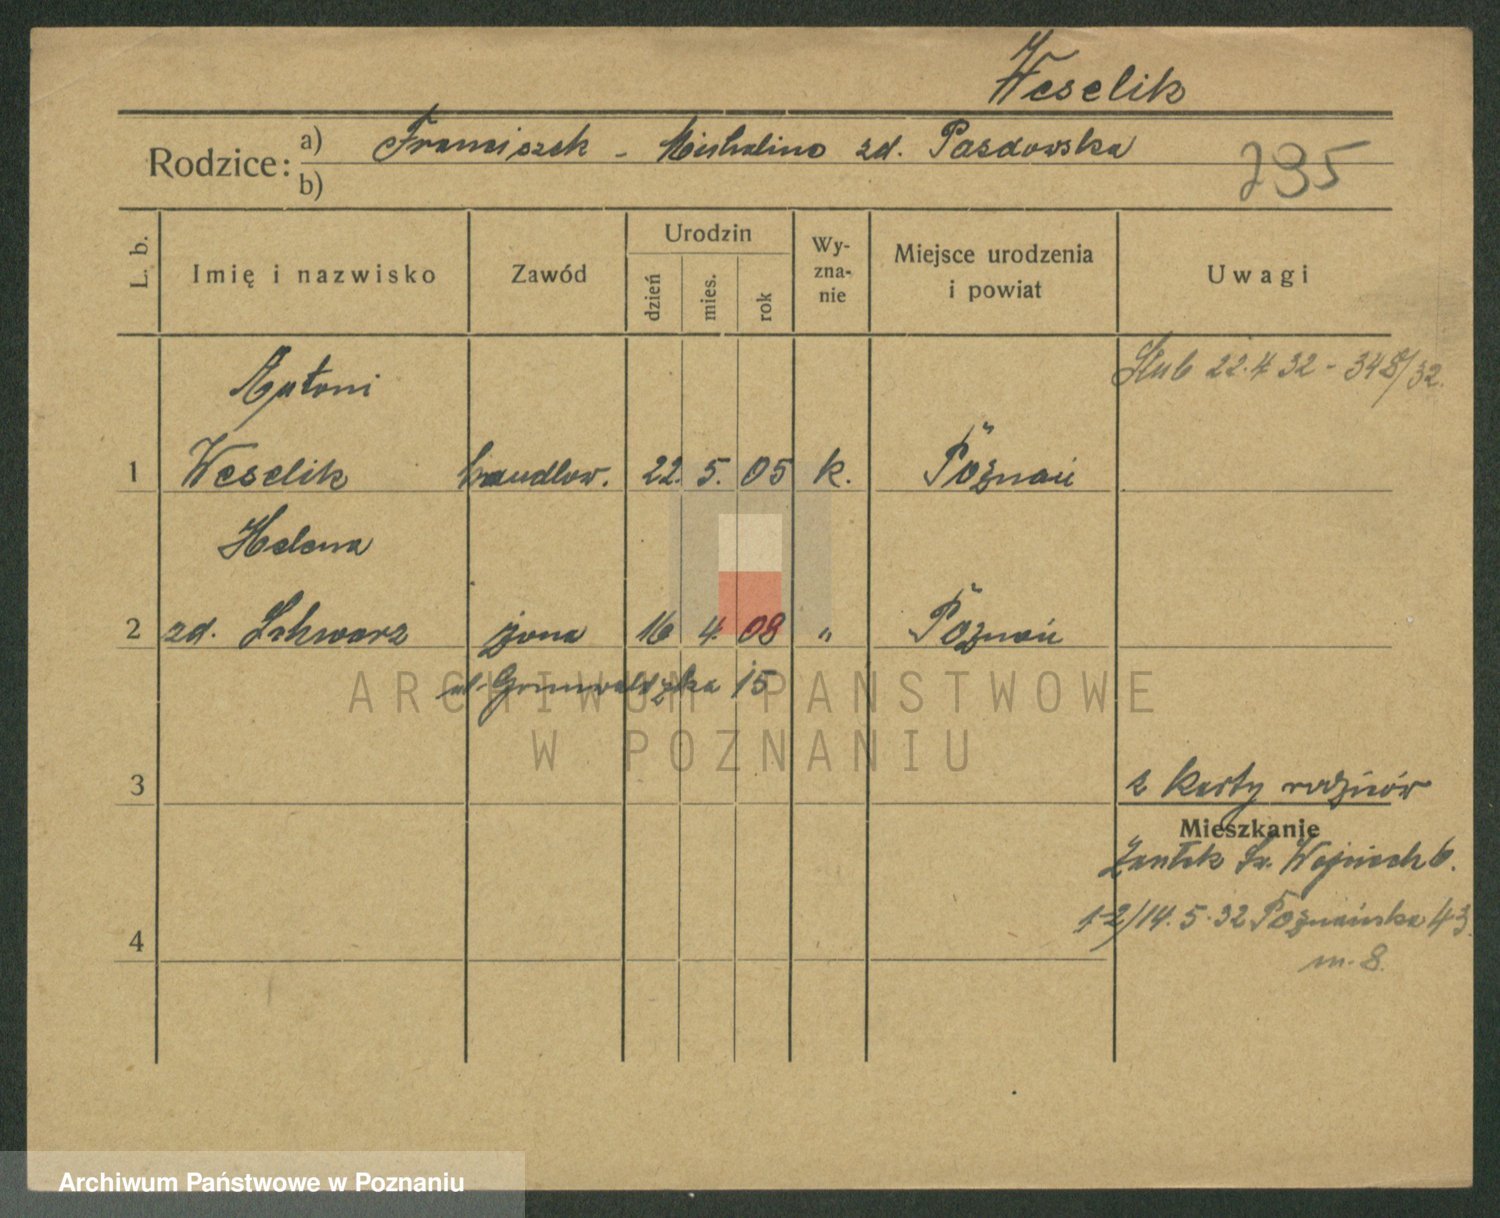 Weselik
Rodzice: a) Franciszek - Michalina zd. Pazdowska
b)
295
L. b. Imię i nazwisko Zawód Urodzin dzień mies. rok Wy-zna-nie Miejsce urodzenia i powiat Uwagi
Antoni
Ślub 22.4.32 - 348/32.
1 Weselik handlow. 22. 5. 05 k. Poznań
Helena
2 zd. Schwarz żona 16 4. 08 " Poznań
ul. Grunwaldzka 15
ARCHIWUM PAŃSTWOWE
W POZNANIU
3 z karty rodziców
Mieszkanie
Zaułek Św. Wojciech 6.
1-2/14.5.32 Poznańska 43
4
m. 8.
Archiwum Państwowe w Poznaniu